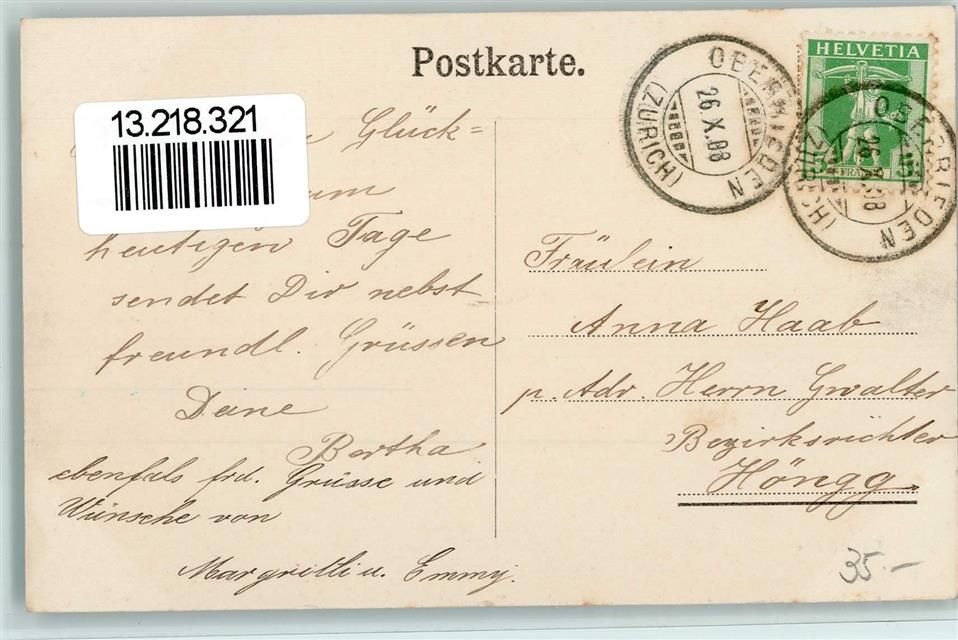 Postkarte.
13.218.321
Glück=
heutigen Tage
sendet Dir nebst
freundl. Grüssen
Deine
Bertha
ebenfals frd. Grüsse und
Wünsche von
Margritli u. Emmy.
OBERRIEDEN
26.X.08
(ZÜRICH)
HELVETIA
5 5
FRANCO
OBERRIEDEN
26.X.08
(ZÜRICH)
Fräulein
Anna Haab
p. Adr. Herrn Gwalter
Bezirksrichter
Höngg.
35.-